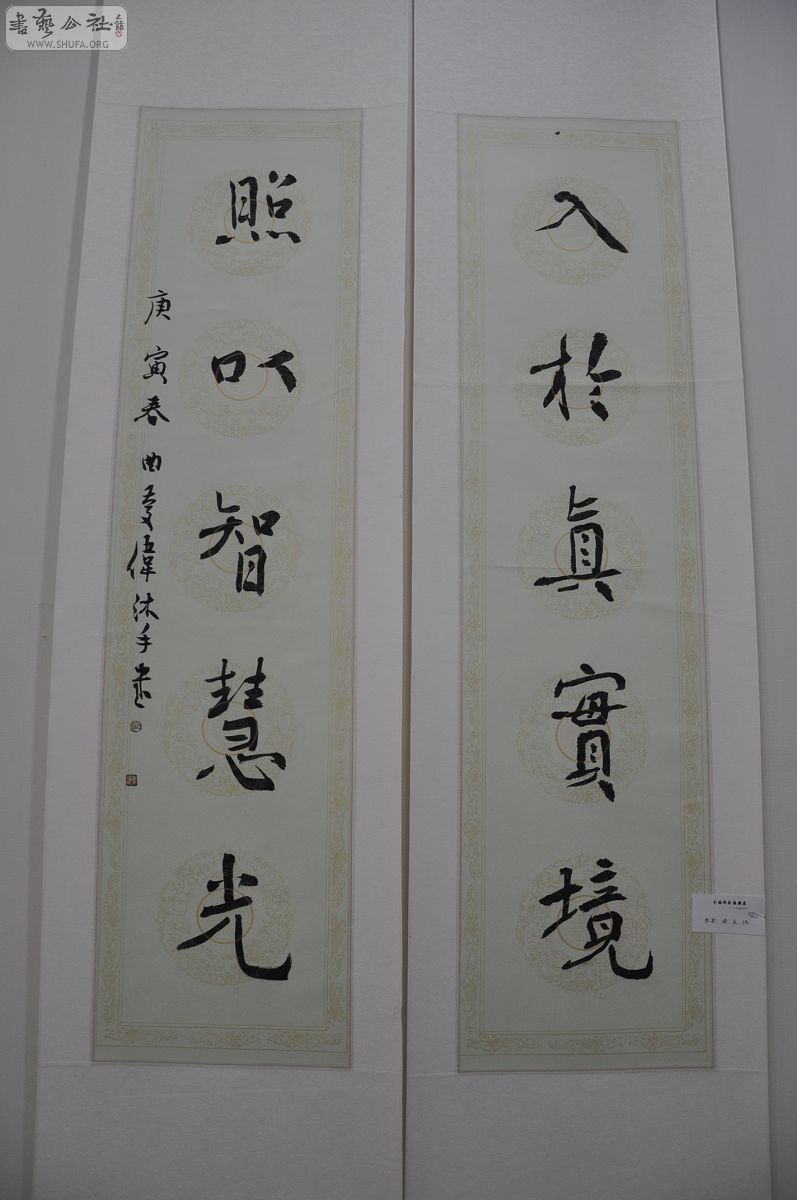 書藝公社
WWW.SHUFA.ORG
入於真實境
照以智慧光
庚寅春曲
偉沐手書
作者: